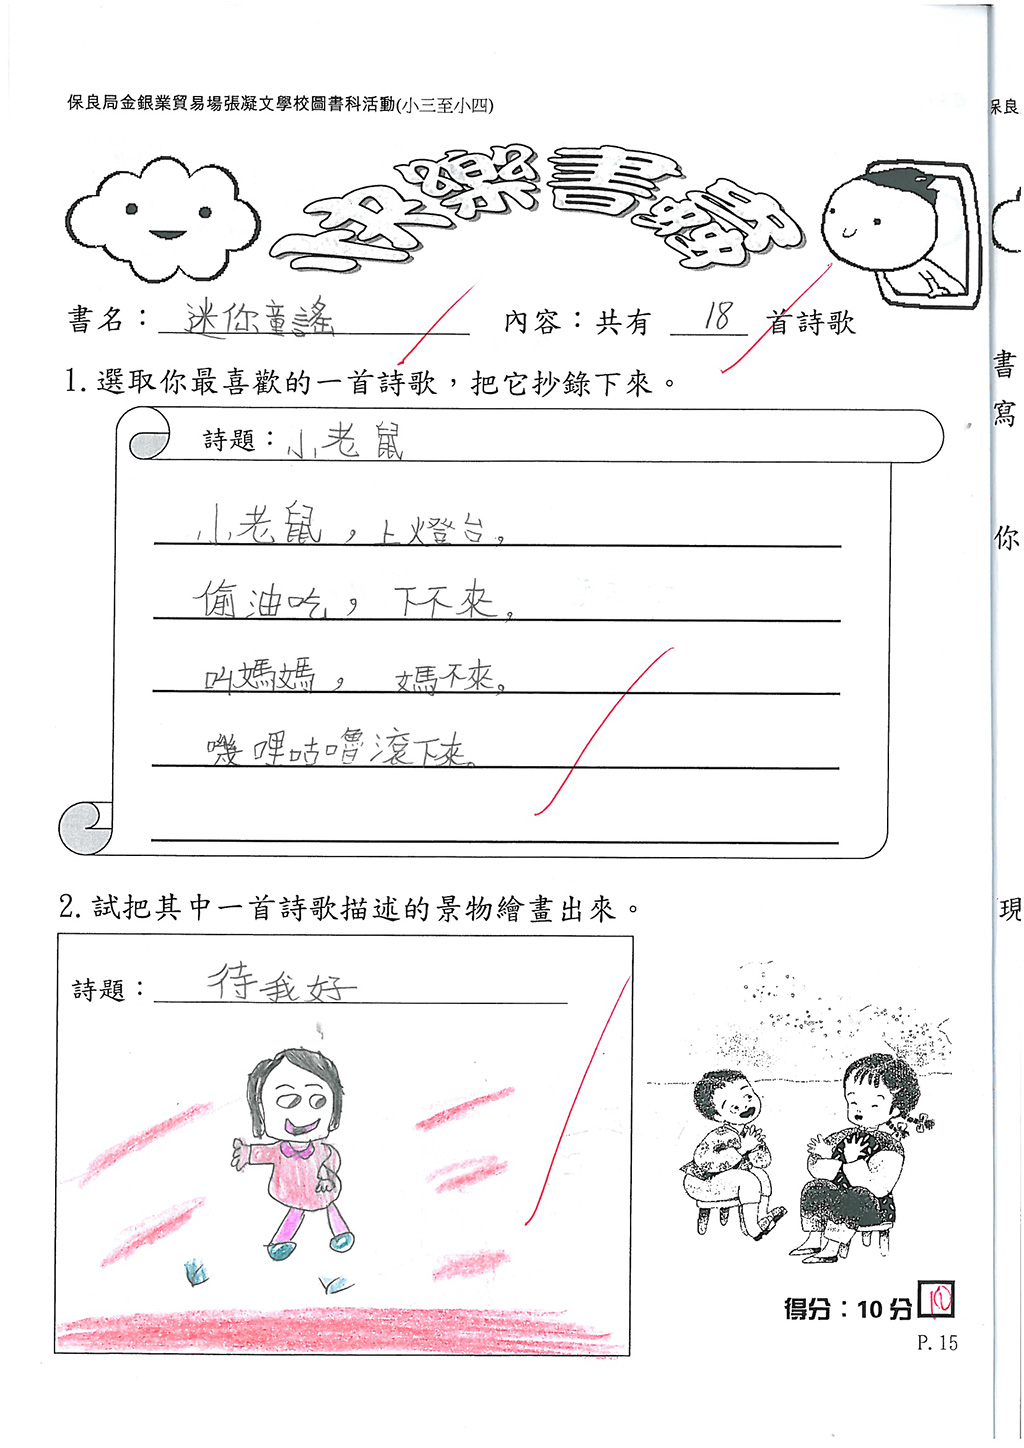 保良局金銀業貿易場張凝文學校圖書科活動(小三至小四)
保良
書蟲
書名：迷你童謠 內容：共有 18 首詩歌
1. 選取你最喜歡的一首詩歌，把它抄錄下來。
書
寫
詩題：小老鼠
小老鼠，上燈台，
你
偷油吃，下不來，
叫媽媽，媽不來，
嘰哩咕嚕滾下來。
2. 試把其中一首詩歌描述的景物繪畫出來。
現
詩題：待我好
得分：10分 10
P. 15